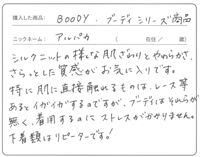 購入した商品： BODY・ブーディシリーズ商品
ニックネーム： アルパカ （ 在住／ 歳）
シルクニットの様な肌ざわりとやわらかさ、
さらっとした質感がお気に入りです。
特に肌に直接触れるものは、レース等
あるとイガイガするのですが、ブーディはそれらが
無く、着用するのにストレスがかかりません。
下着類はリピーターです！